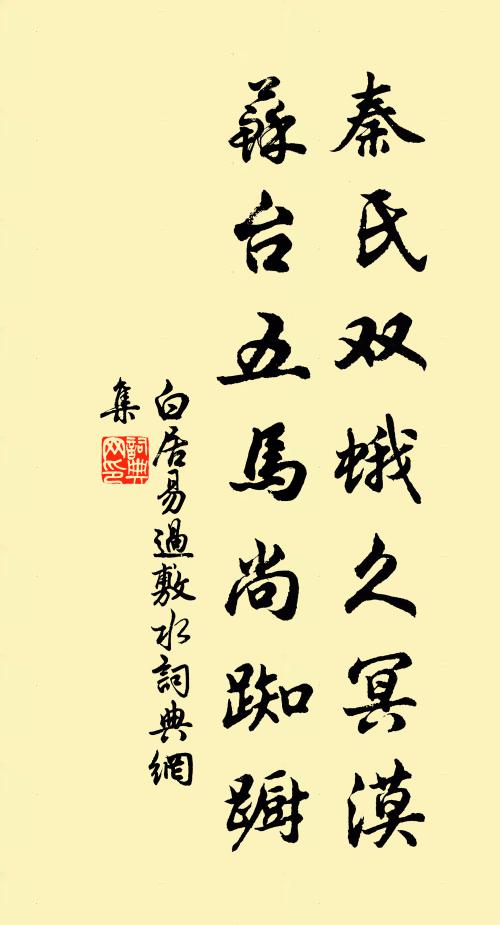 秦氏双蛾久冥漠
蘇台五馬尚踟蹰
白居易過敷水詞典網
集
詞典網印